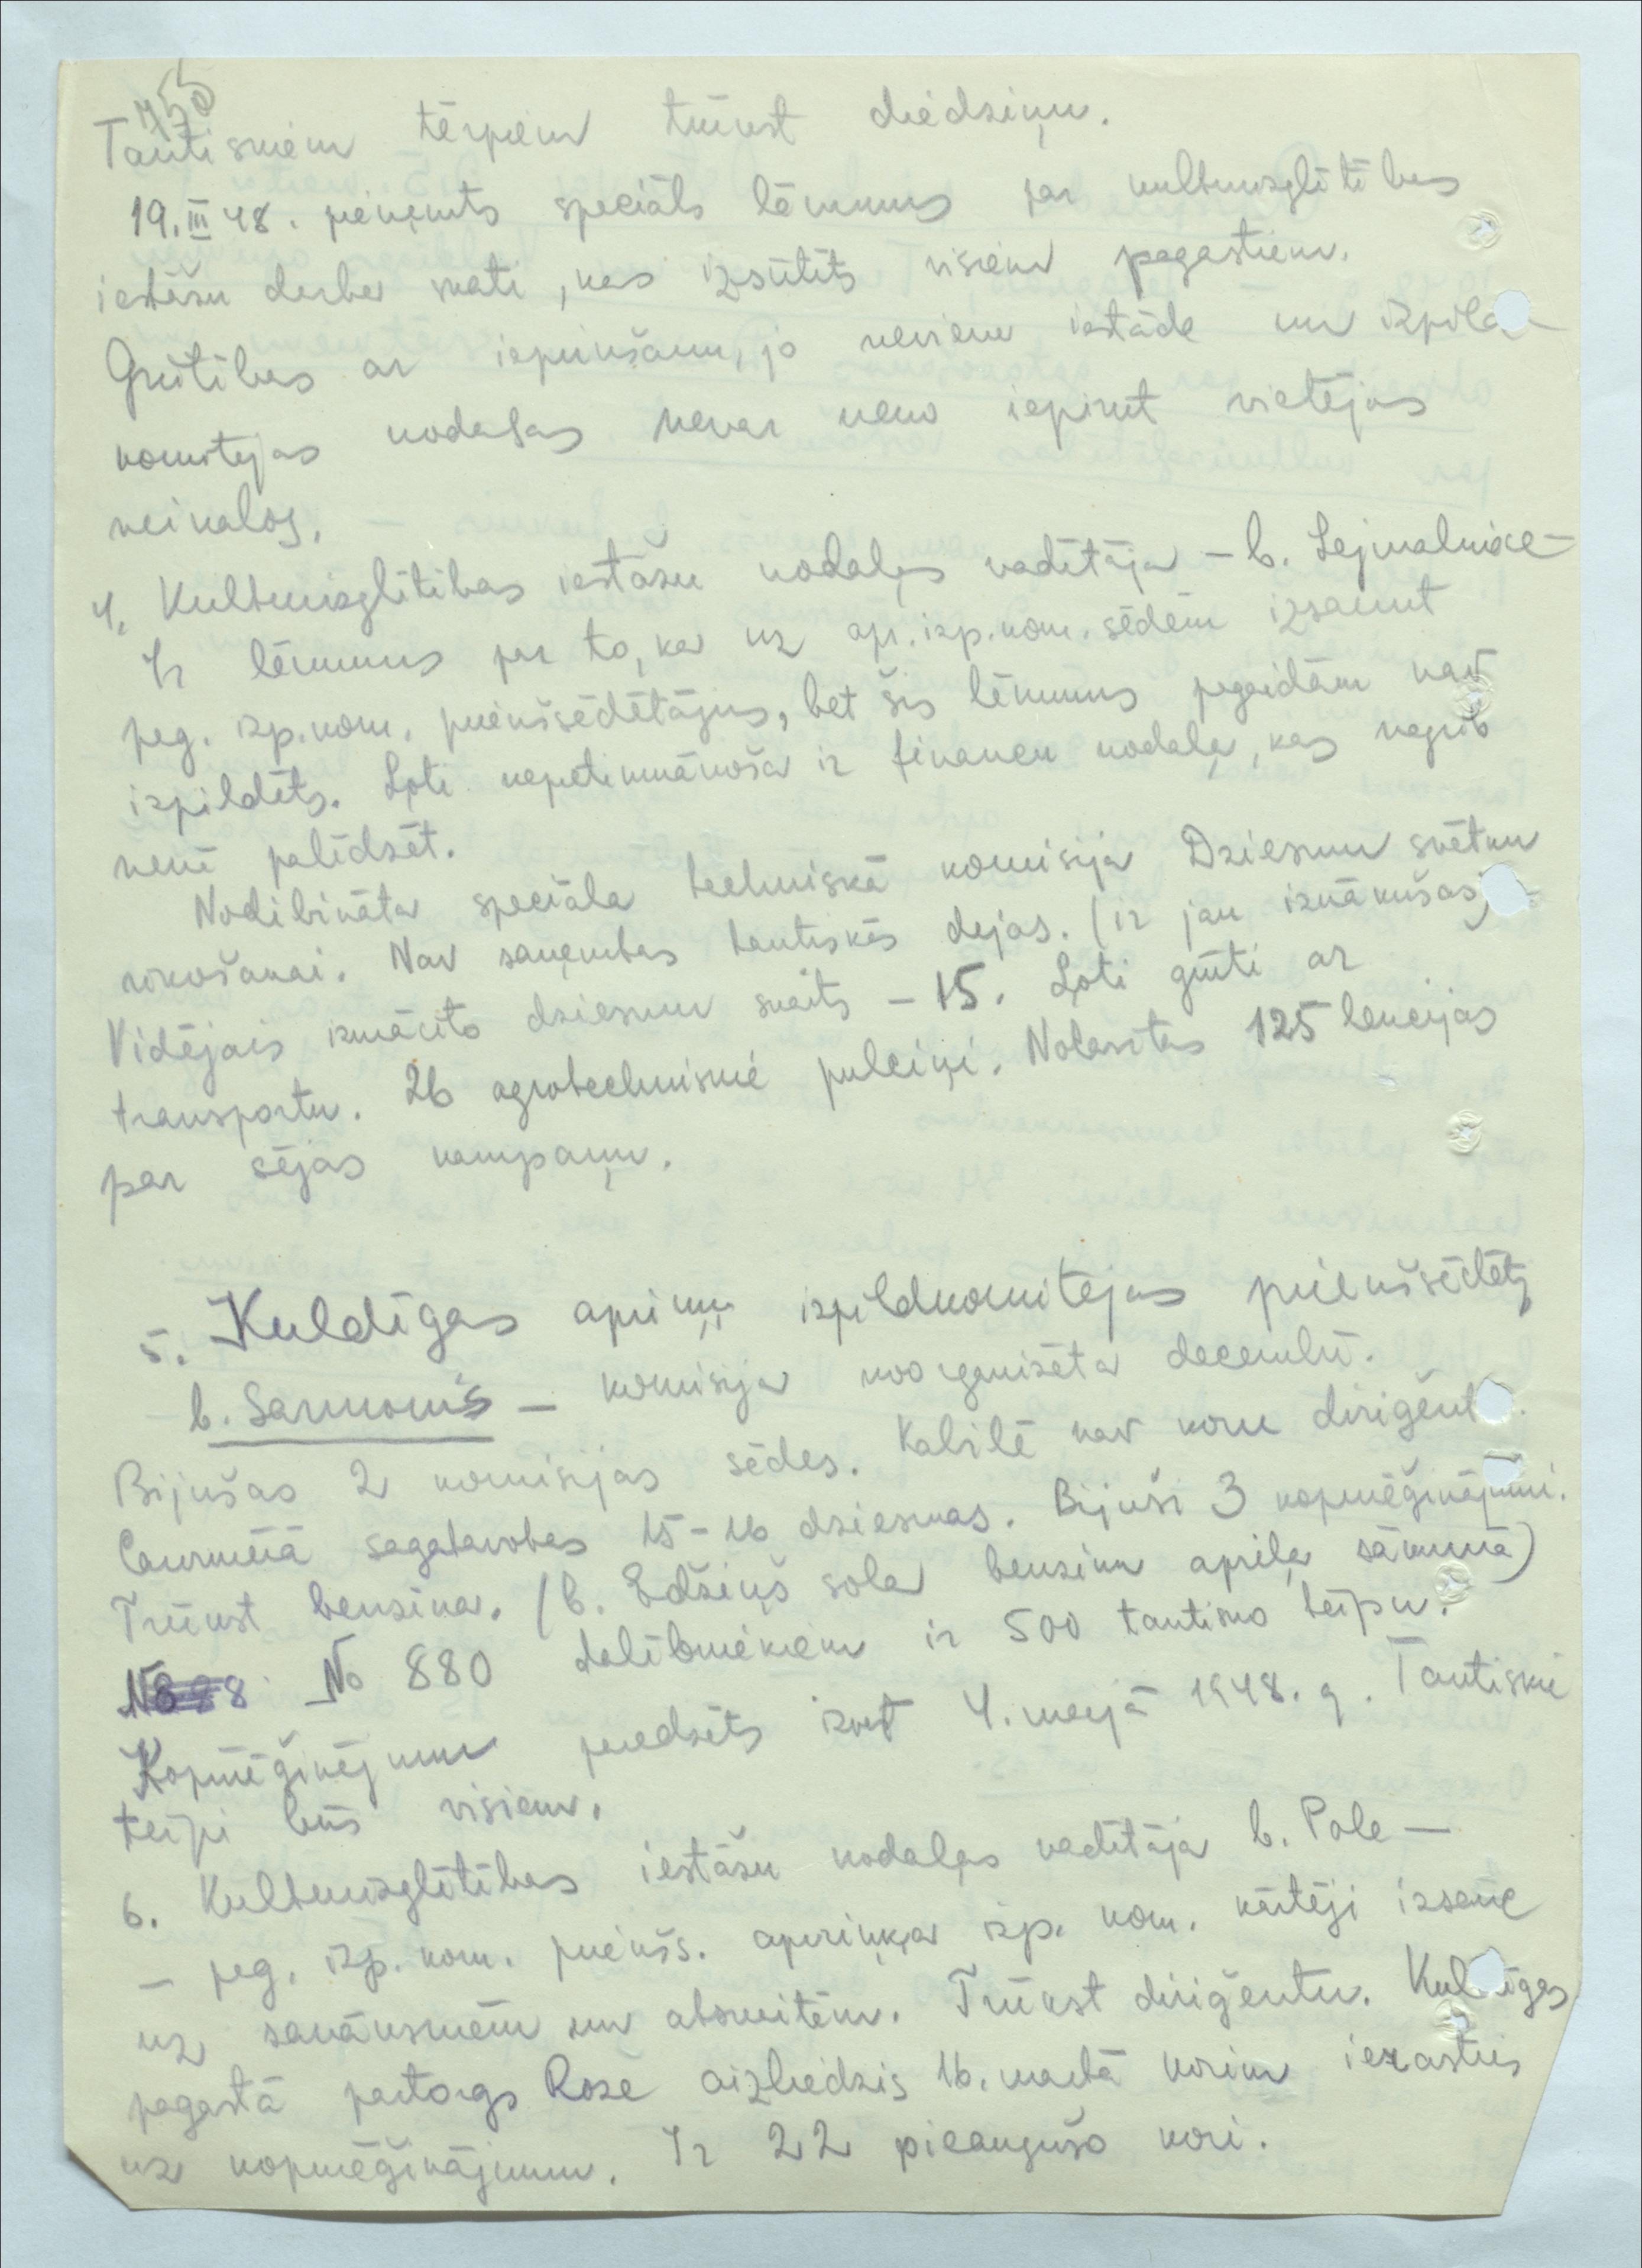 450
Tautiskiem tērpiem trūkst diedziņu.
19.III 48. pieņemts speciāls lēmums par kultūrizglītības
iestāžu darba skati, kas izsūtīts visiem pagastiem.
Grūtības ar iepirkšanu, jo neviena iestāde un izpild-
komitejas nodaļas nevar neko iepirkt vietējos
veikalos.
4. Kultūrizglītības iestāžu nodaļas vadītāja – b. Lejmalniece –
Ir lēmums par to, ka uz apr. izp. kom. sēdēm izsaukt
pag. izp. kom. priekšsēdētājus, bet šis lēmums pagaidām nav
izpildīts. Ļoti nepretimnākoša ir finanču nodaļa, kas negrib
nemē palīdzēt.
Nodibināta speciāla techniskā komisija Dziesmu svētku
rīkošanai. Nav saņemtas tautiskās dejas. (ir jau iznākušas)
Vidējais iemācīto dziesmu skaits – 15. Ļoti grūti ar
transportu. 26 agrotechniskie pulciņi. Nolasītas 125 lekcijas
par sējas kampaņu.
5. Kuldīgas apriņķi izpildkomitejas priekšsēdētāj
b. Sarmonis – komisija noorganizēta decembrī.
Bijušas 2 komisijas sēdes. Kabilē nav koru diriģent .
Caurmērā sagatavotas 15-16 dziesmas. Bijuši 3 kopmēģinājumi.
Trūkst benzina. (b. Edžiņš sola benzinu aprīļa sākumā)
No 880 dalībniekiem ir 500 tautisko tērpu.
Kopmēģinājumu paredzēts izvest 4. maijā 1948. g. Tautiskie
tērpi būs visiem.
6. Kultūrizglītības iestāžu nodaļas vadītāja b. Pole –
– pag. izp. kom. priekšs. apriņķa izp. kom. kārtēji izsauc
uz sanāksmēm un atskaitēm. Trūkst diriģentu. Kuldīgas
pagastā partorgs Roze aizliedzis 16. martā korim ierasties
uz kopmēģinājumu. Ir 22 pieaugušo kori.